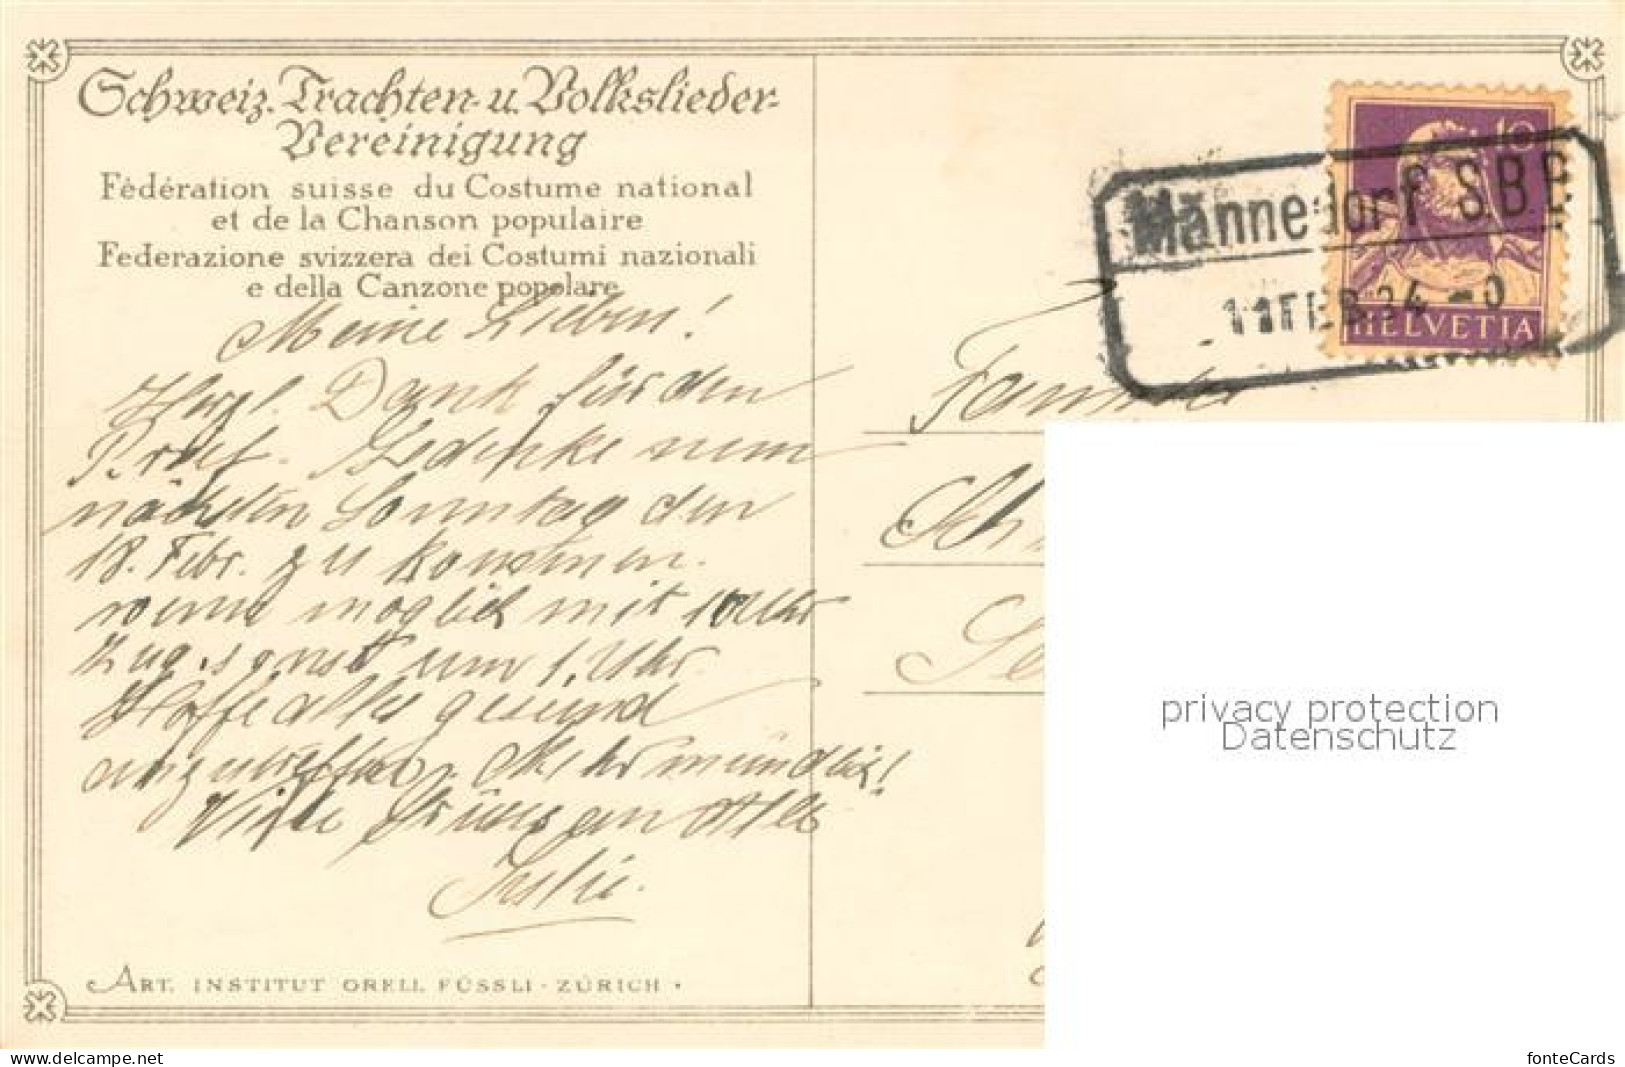 Schweiz. Trachten- u. Volkslieder-
Vereinigung
Fédération suisse du Costume national
et de la Chanson populaire
Federazione svizzera dei Costumi nazionali
e della Canzone popolare
Meine Lieben!
Herzl. Dank für den
Brief. Gedenke nun
nächsten Sonntag den
18. Febr. zu kommen.
wenn möglich mit 10 Uhr
Zug, sonst um 1. Uhr
Hoffe alles gesund
anzutreffen. Mehr mündlich!
Viele Grüsse an Alle
ART. INSTITUT ORELL FÜSSLI - ZÜRICH
10
HELVETIA
Männedorf S.B.B.
11 FEB. 34 - 0
Familie
privacy protection
Datenschutz
www.delcampe.net
fonteCards